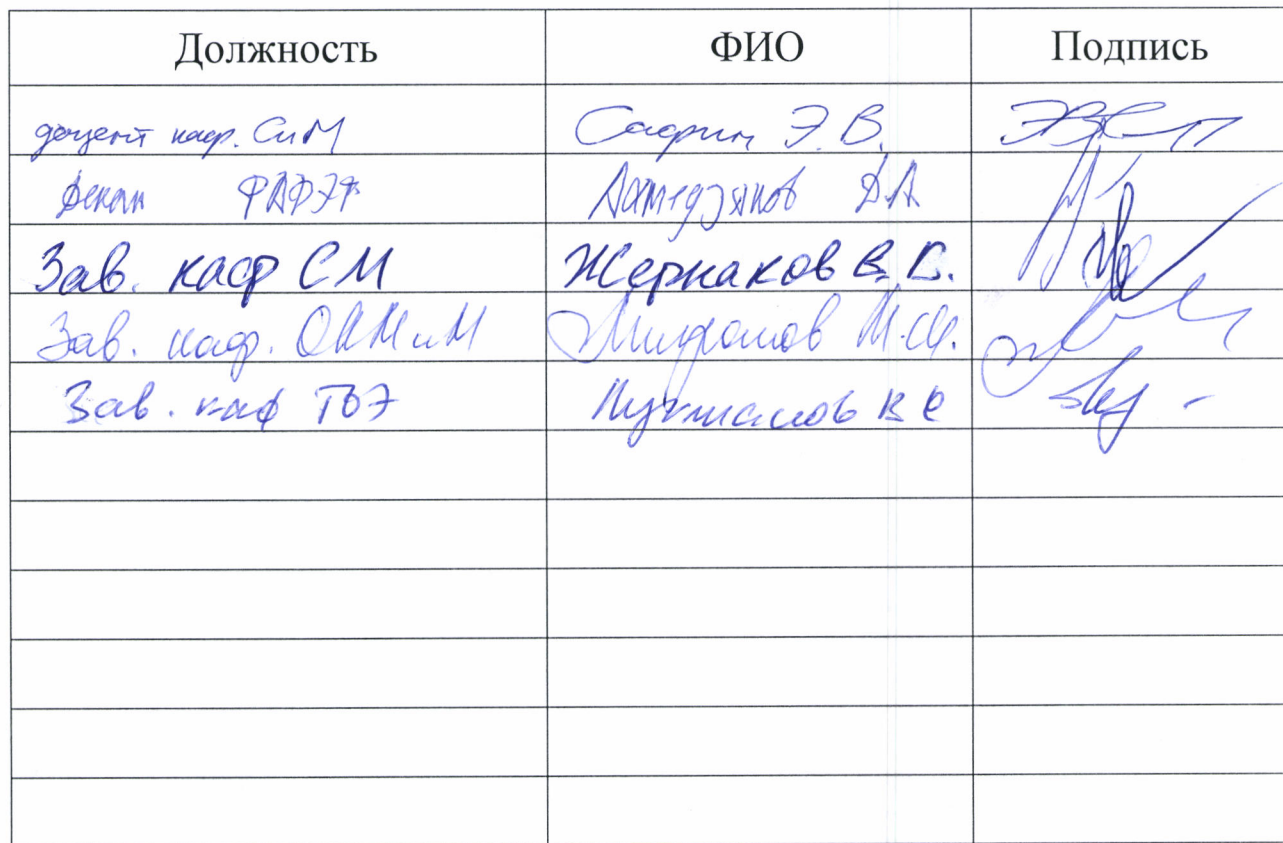 Должность ФИО Подпись
доцент каф. СиМ Сафин Э. В.
декан ФАДЭТ Ахмедзянов ДА
Зав. каф СМ Жернаков В. С.
Зав. каф. ОКМиМ Мигранов М.Ш.
Зав. каф ТОЭ Лукманов В С